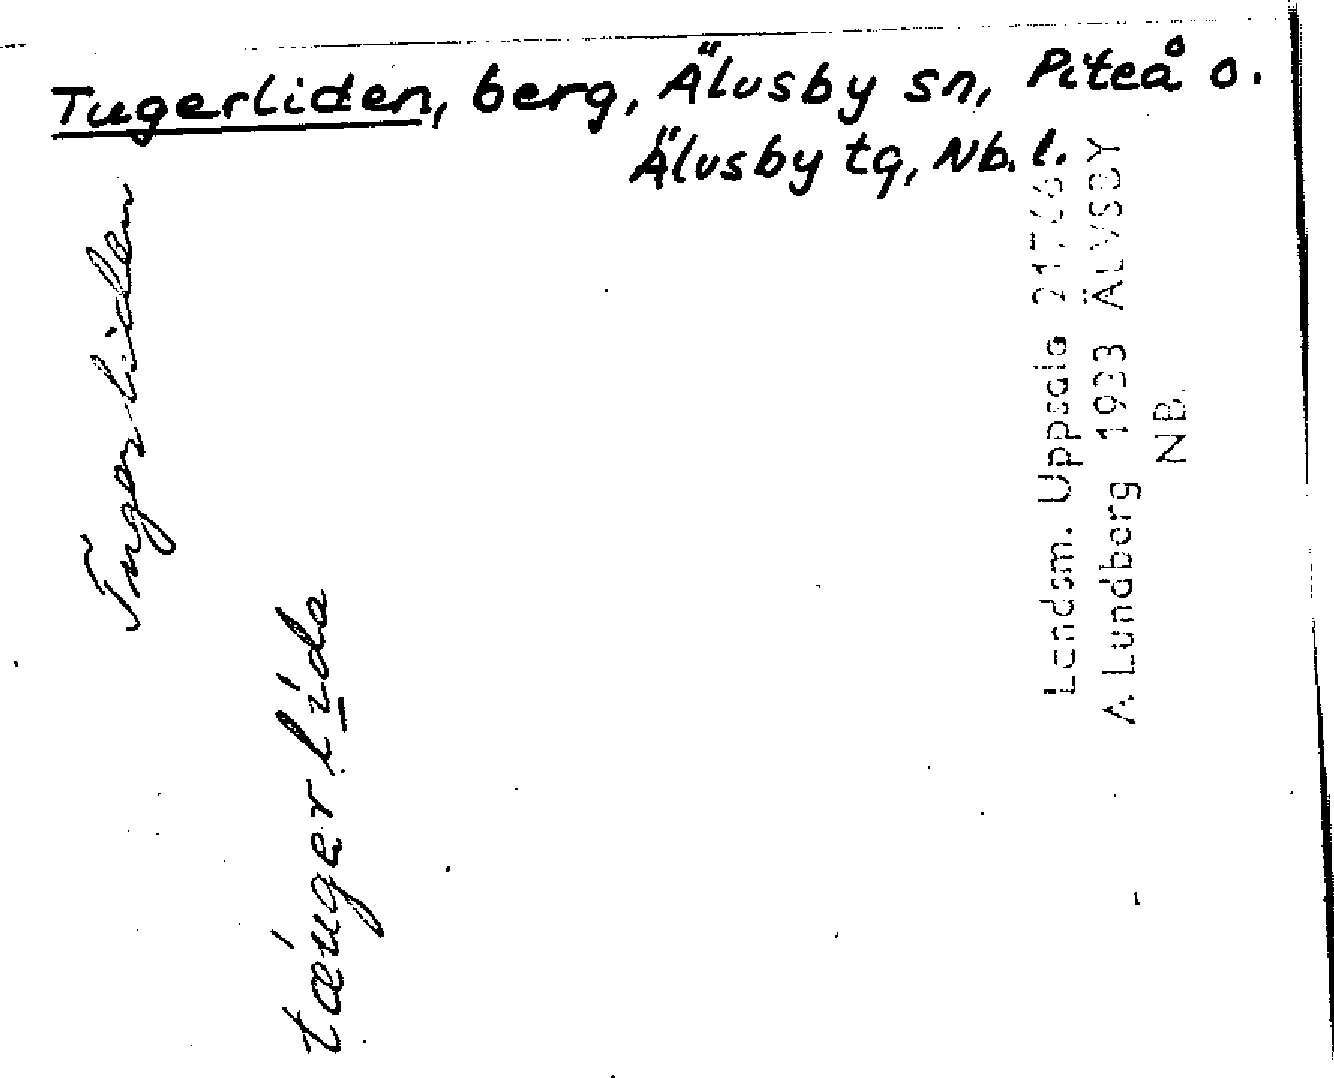 Tugerliden, berg, Älvsby sn, Piteå o.
Älvsby tg, Nb. l.
Tugerliden
tæ´ugerlida
Landsm. Uppsala
A Lundberg 1933 ÄLVSBY
NB.